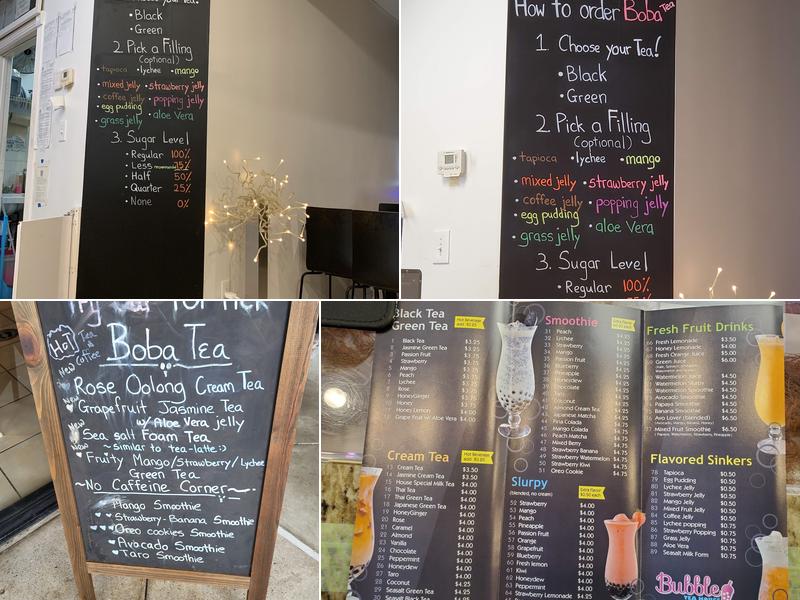 • Black
• Green
2. Pick a Filling
(optional)
• tapioca • lychee • mango
• mixed jelly • strawberry jelly
• coffee jelly • popping jelly
• egg pudding
• aloe Vera
• grass jelly
3. Sugar Level
• Regular 100%
• Less 75%
• Half 50%
• Quarter 25%
• None 0%
How to order Boba Tea
1. Choose your Tea!
• Black
• Green
2. Pick a Filling
(optional)
• tapioca • lychee • mango
• mixed jelly • strawberry jelly
• coffee jelly • popping jelly
• egg pudding
• aloe Vera
• grass jelly
3. Sugar Level
• Regular 100%
Hot Tea & Coffee
Boba Tea
New Rose Oolong Cream Tea
New Grapefruit Jasmine Tea
w/ Aloe Vera jelly
New Sea salt Foam Tea
~ similar to tea-latte :)
Fruity Mango/Strawberry/Lychee
Green Tea
~No Caffeine Corner~
Mango Smoothie
Strawberry-Banana Smoothie
Oreo cookies Smoothie
Avocado Smoothie
Taro Smoothie
Black Tea
Green Tea
Hot Beverages
add $0.25
1 Black Tea $3.25
2 Jasmine Green Tea $3.25
3 Passion Fruit $3.75
4 Strawberry $3.75
5 Mango $3.75
6 Peach $3.75
7 Lychee $3.75
8 Rose $3.75
9 Honey/Ginger $3.75
10 Honey $3.75
11 Honey Lemon $4.00
12 Grape Fruit w/ Aloe Vera $4.00
Cream Tea
Hot Beverage
add $0.25
13 Cream Tea $3.50
14 Jasmine Cream Tea $3.50
15 House Special Milk Tea $4.00
16 Thai Tea $4.00
17 Thai Green Tea $4.00
18 Japanese Green Tea $4.00
19 Honey/Ginger $4.00
20 Rose $4.00
21 Caramel $4.00
22 Almond $4.00
23 Vanilla $4.00
24 Chocolate $4.00
25 Peppermint $4.00
26 Honeydew $4.00
27 Taro $4.00
28 Coconut $4.00
29 Seasalt Green Tea $4.25
30 Seasalt Black Tea
Smoothie
31 Peach $4.25
32 Lychee $4.25
33 Strawberry $4.25
34 Mango $4.25
35 Passion Fruit $4.25
36 Pineapple $4.25
37 Blueberry $4.25
38 Honeydew $4.25
39 Chocolate $4.25
40 Taro $4.25
41 Coconut
42 Almond Cream Tea
43 Japanese Matcha
44 Pina Colada
45 Mango Colada
46 Peach Matcha $4.75
47 Mixed Berry $4.75
48 Strawberry Banana $4.75
49 Strawberry Watermelon $4.75
50 Strawberry Kiwi $4.75
51 Oreo Cookie $4.75
Slurpy
(blended, no cream)
52 Strawberry $4.00
53 Mango $4.00
54 Peach $4.00
55 Pineapple $4.00
56 Passion Fruit $4.00
57 Orange $4.00
58 Grapefruit $4.00
59 Blueberry $4.00
60 Fresh lemon $4.00
61 Kiwi $4.00
62 Honeydew $4.00
63 Peppermint $4.00
64 Strawberry Lemonade $4.25
Fresh Fruit Drinks
66 Fresh Lemonade $3.50
67 Honey Lemonade $4.00
68 Fresh Orange Juice $5.00
69 Green Juice $6.00
Watermelon Juice
Watermelon Slurpy
Watermelon Smoothie
Avocado Smoothie
Papaya Smoothie
Banana Smoothie
Avo Lover (blended)
Mixed Fruit Smoothie
Flavored Sinkers
78 Tapioca $0.50
79 Egg Pudding $0.50
80 Lychee Jelly $0.50
81 Strawberry Jelly $0.50
82 Mango Jelly $0.50
83 Mixed Fruit Jelly $0.50
84 Coffee Jelly $0.50
85 Lychee popping $0.50
86 Strawberry Popping $0.50
87 Grass Jelly $0.50
88 Aloe Vera $0.75
89 Seasalt Milk Form $0.75
Bubble
TEA HOUSE